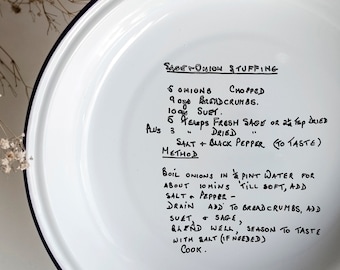 SAGE & ONION STUFFING
6 ONIONS CHOPPED
9 ozs BREADCRUMBS.
10ozs SUET.
6 TEASPS FRESH SAGE OR 2½ TSP DRIED
PLUS 3 " DRIED "
SALT + BLACK PEPPER (TO TASTE)
METHOD
BOIL ONIONS IN ½ PINT WATER FOR
ABOUT 10 MINS 'TILL SOFT, ADD
SALT & PEPPER –
DRAIN ADD TO BREADCRUMBS, ADD
SUET, & SAGE,
BLEND WELL, SEASON TO TASTE
WITH SALT (IF NEEDED)
COOK.